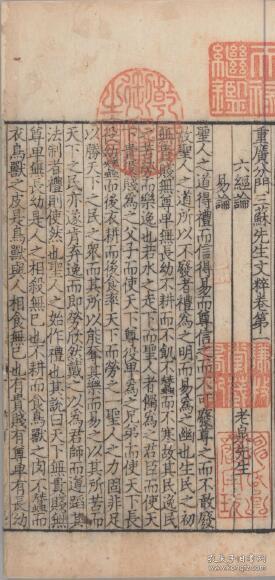 天祿繼鑑
重廣分門三蘇先生文粹卷第一
六經論
易論
老泉先生
聖人之道得禮而信得易而尊信之而不可廢尊之而不敢廢
故聖人之道所以不廢者禮為之明而易為之幽也生民之初
無貴賤無尊卑無長幼不耕而不飢不蠶而不寒故其民逸民
之苦勞而樂逸也若水之走下而聖人者偏為之君臣而使天
下貴役賤為之父子而使天下尊役卑為之兄弟而使天下長
役幼蠶而後衣耕而後食率天下而勞之一聖人之力固非足
以勝天下之民之眾而其所以能奪其樂而易之以其所苦而
天下之民亦遂肯弃逸而即勞欣然戴之以為君師而遵蹈其
法制者禮則使然也聖人之始作禮也其說曰天下無貴賤無
尊卑無長幼是人之相殺無已也不耕而食鳥獸之肉不蠶而
衣鳥獸之皮是鳥獸與人相食無已也有貴賤有尊卑有長幼